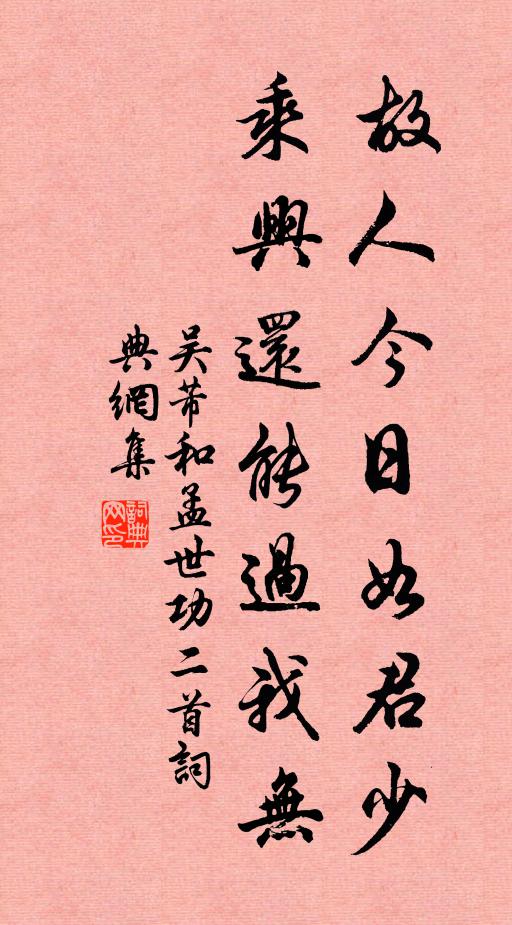 故人今日如君少
乘興還能過我無
吴芾和孟世功二首詞
典網集
詞典
网印